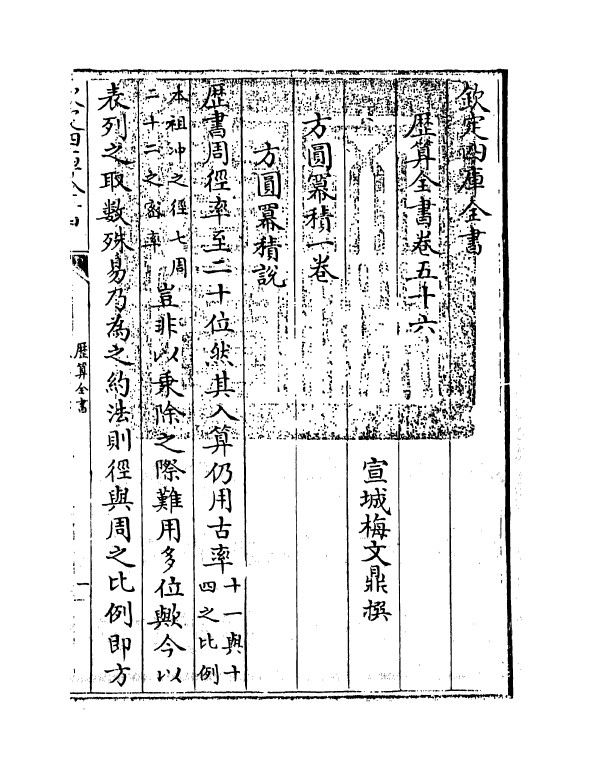 欽定四庫全書
歴算全書卷五十六
宣城梅文鼎撰
方圓冪積一卷
方圓冪積說
歴書周徑率至二十位然其入算仍用古率十一與十四之比例
本祖冲之徑七周二十二之宻率豈非以乗除之際難用多位歟今以
表列之取數殊易乃為之約法則徑與周之比例即方
歴算全書
一